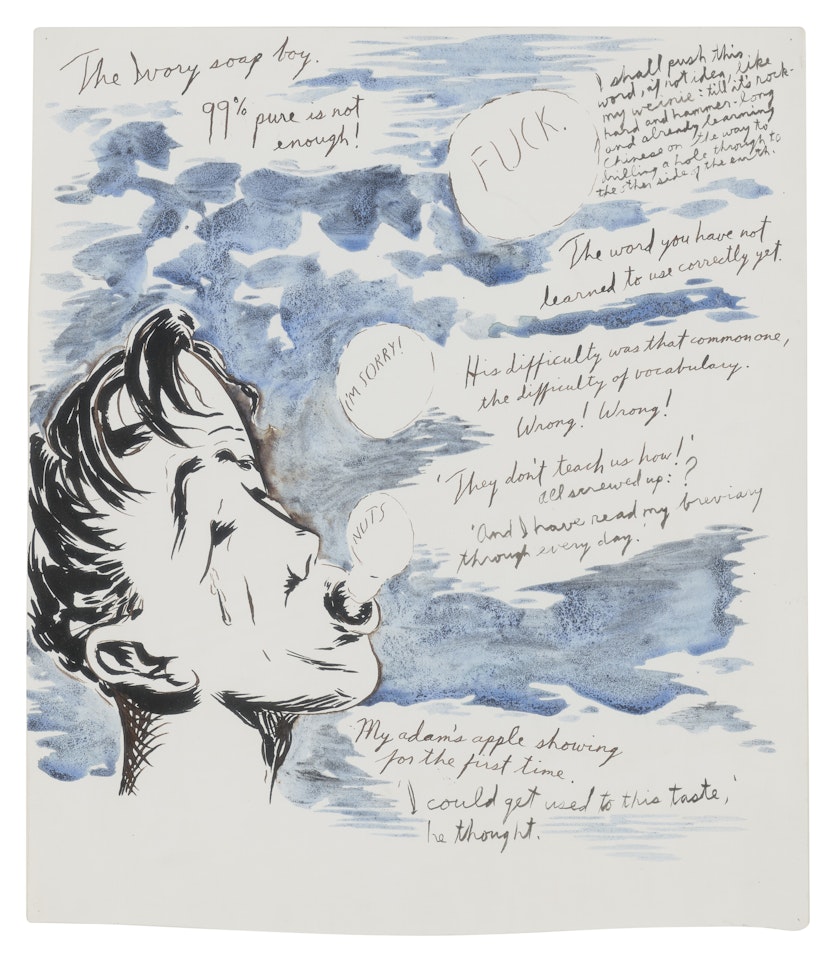 The Ivory soap boy.
99% pure is not
enough!
FUCK.
I shall push this
word, if not idea, like
my weinie: till it's rock-
hard and hammer-long
and already learning
Chinese on the way to
drilling a hole through to
the other side of the earth.
The word you have not
learned to use correctly yet.
I'M SORRY!
His difficulty was that common one,
the difficulty of vocabulary.
Wrong! Wrong!
'They don't teach us how!'
all screwed up: ?
NUTS
'And I have read my breviary
through every day.'
My adam's apple showing
for the first time.
'I could get used to this taste,'
he thought.